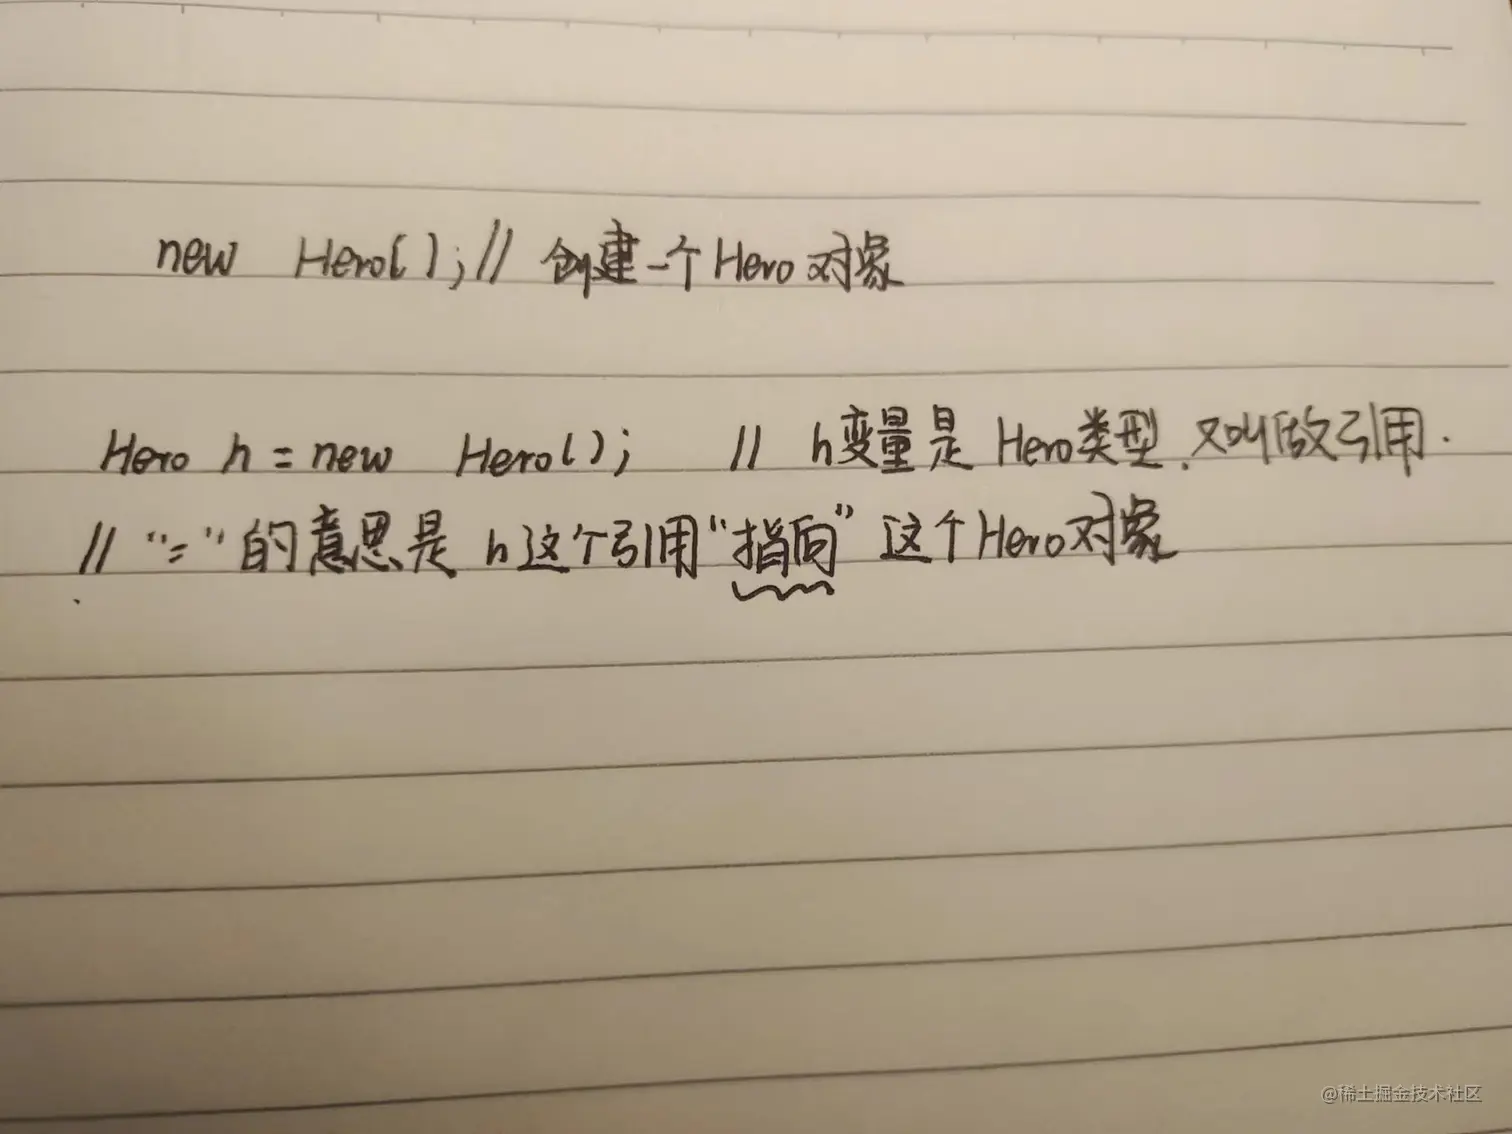 new Hero(); // 创建一个Hero对象
Hero h = new Hero(); // h变量是Hero类型,又叫做引用.
// “=”的意思是 h这个引用“指向”这个Hero对象
@稀土掘金技术社区